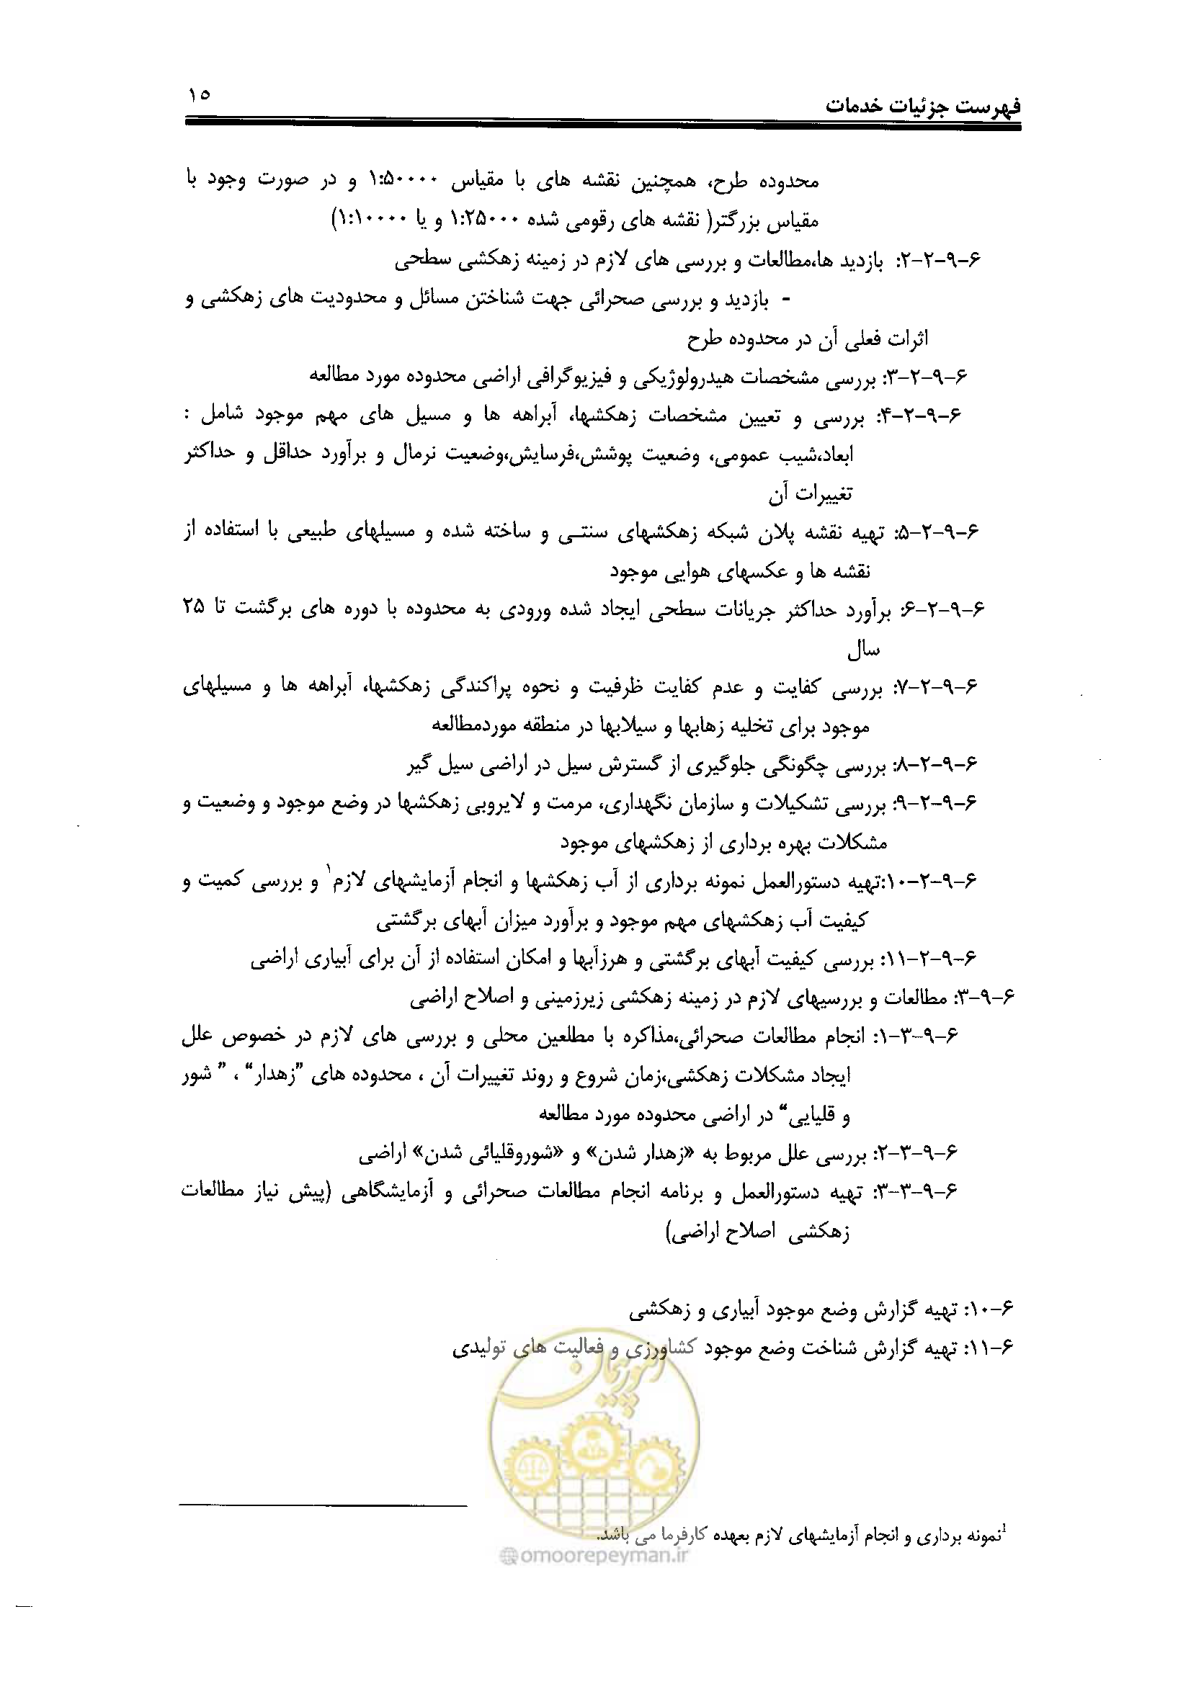 ۱۵
فهرست جزئیات خدمات
محدوده طرح، همچنین نقشه های با مقیاس ۱:۵۰۰۰۰ و در صورت وجود با
مقیاس بزرگتر( نقشه های رقومی شده ۱:۲۵۰۰۰ و یا ۱:۱۰۰۰۰)
۶-۹-۲-۲: بازدید ها،مطالعات و بررسی های لازم در زمینه زهکشی سطحی
- بازدید و بررسی صحرائی جهت شناختن مسائل و محدودیت های زهکشی و
اثرات فعلی آن در محدوده طرح
۶-۹-۲-۳: بررسی مشخصات هیدرولوژیکی و فیزیوگرافی اراضی محدوده مورد مطالعه
۶-۹-۲-۴: بررسی و تعیین مشخصات زهکشها، آبراهه ها و مسیل های مهم موجود شامل :
ابعاد،شیب عمومی، وضعیت پوشش،فرسایش،وضعیت نرمال و برآورد حداقل و حداکثر
تغییرات آن
۶-۹-۲-۵: تهیه نقشه پلان شبکه زهکشهای سنتی و ساخته شده و مسیلهای طبیعی با استفاده از
نقشه ها و عکسهای هوایی موجود
۶-۹-۲-۶: برآورد حداکثر جریانات سطحی ایجاد شده ورودی به محدوده با دوره های برگشت تا ۲۵
سال
۶-۹-۲-۷: بررسی کفایت و عدم کفایت ظرفیت و نحوه پراکندگی زهکشها، آبراهه ها و مسیلهای
موجود برای تخلیه زهابها و سیلابها در منطقه موردمطالعه
۶-۹-۲-۸: بررسی چگونگی جلوگیری از گسترش سیل در اراضی سیل گیر
۶-۹-۲-۹: بررسی تشکیلات و سازمان نگهداری، مرمت و لایروبی زهکشها در وضع موجود و وضعیت و
مشکلات بهره برداری از زهکشهای موجود
۶-۹-۲-۱۰:تهیه دستورالعمل نمونه برداری از آب زهکشها و انجام آزمایشهای لازم۱ و بررسی کمیت و
کیفیت آب زهکشهای مهم موجود و برآورد میزان آبهای برگشتی
۶-۹-۲-۱۱: بررسی کیفیت آبهای برگشتی و هرزآبها و امکان استفاده از آن برای آبیاری اراضی
۶-۹-۳: مطالعات و بررسیهای لازم در زمینه زهکشی زیرزمینی و اصلاح اراضی
۶-۹-۳-۱: انجام مطالعات صحرائی،مذاکره با مطلعین محلی و بررسی های لازم در خصوص علل
ایجاد مشکلات زهکشی،زمان شروع و روند تغییرات آن ، محدوده های ”زهدار“ ، ” شور
و قلیایی“ در اراضی محدوده مورد مطالعه
۶-۹-۳-۲: بررسی علل مربوط به «زهدار شدن» و «شوروقلیائی شدن» اراضی
۶-۹-۳-۳: تهیه دستورالعمل و برنامه انجام مطالعات صحرائی و آزمایشگاهی (پیش نیاز مطالعات
زهکشی اصلاح اراضی)
۶-۱۰: تهیه گزارش وضع موجود آبیاری و زهکشی
۶-۱۱: تهیه گزارش شناخت وضع موجود کشاورزی و فعالیت های تولیدی
امور پیمان
1نمونه برداری و انجام آزمایشهای لازم بعهده کارفرما می باشد.
@omoorepeyman.ir